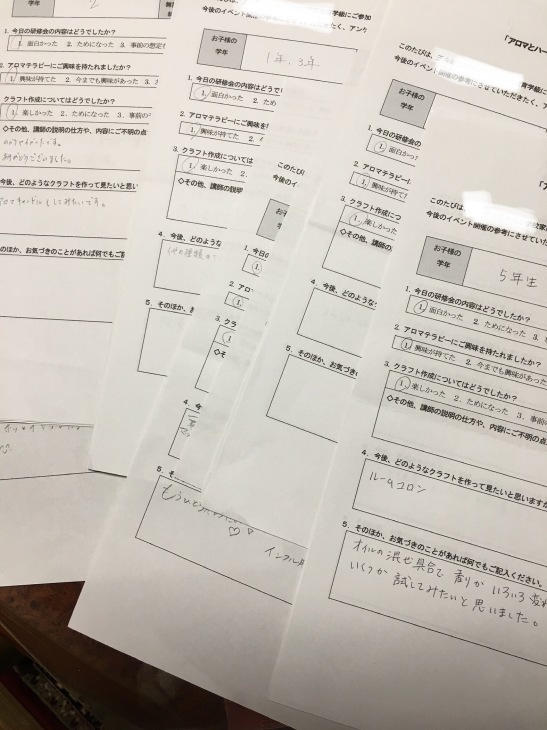 学年
2
1. 今日の研修会の内容はどうでしたか?
1. 面白かった 2. ためになった 3. 事前の想定
2. アロマテラピーにご興味を持たれましたか?
1. 興味が持てた 2. 今までも興味があった 3.
クラフト作成についてはどうでしたか?
1. 楽しかった 2. ためになった 3. 事前の
◇その他、講師の説明の仕方や、内容にご不明の点
ありがとうございました。
今後、どのようなクラフトを作って見たいと思い
のほか、お気づきのことがあれば何でもご
このたびは、
学級にご参加
今後のイベント開催の参考に
たく、アンケ
お子様の
学年
1年、3年
1. 今日の研修会の内容はどうで
1. 面白かった 2. ため
2. アロマテラピーにご興味を
1. 興味が持てた 2.
3. クラフト作成については
1. 楽しかった 2.
◇その他、講師の説明
4. 今後、どのような
5. そのほか、お
このたび
今後のイ
お子様の
学年
1. 今日の
1.
2. アロマ
1.
3. クラ
1.
◇そ
4. 今
5. そ
「アロマとハー
このたびは、
育学級に
今後のイベント開催の参考にさせていただきたく、ア
お子様の
学年
1. 今日の研修会の
1. 面白かっ
2. アロマテラピー
1. 興味が持て
3. クラフト作成につ
1. 楽しかった
◇その他、講師の
4. 今後、どのような
5. そのほか、お気づき
「ア
このたびは、
今後のイベント開催の参考にさせていた
お子様の
学年
5年生
1. 今日の研修会の内容はどうでしたか?
1. 面白かった 2. ためになった 3.
2. アロマテラピーにご興味を持たれましたか?
1. 興味が持てた 2. 今までも興味があった
3. クラフト作成についてはどうでしたか?
1. 楽しかった 2. ためになった 3. 事前の
◇その他、講師の説明の仕方や、内容にご不明の点
4. 今後、どのようなクラフトを作って見たいと思いますか
ルームコロン
5. そのほか、お気づきのことがあれば何でもご記入ください。
オイルの混ぜ具合で 香りが いろいろ変わ
いくつか 試してみたいと思いました。